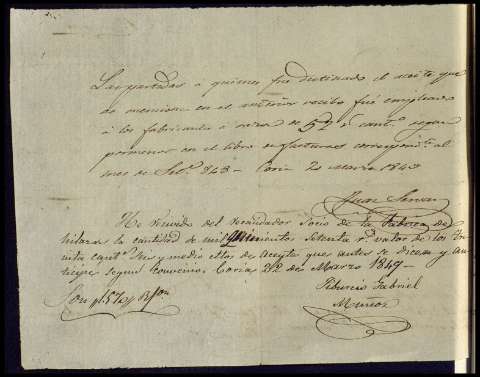 Las partidas a quienes fue destinado el aceite que
se menciona en el anterior recibo fué empleado
á los fabricantes á razon de 52 rˢ cantº segun
pormenor en el libro en facturas correspondᵗᵉ al
mes de Setᵉ 843 - Coria 20 Marzo 1843
Juan
He recivido del recaudador Socio de la Fabrica de
hilaza la cantidad de mil quinientos setenta rˢ valor de los
cantˢ tres y medio ellos de Aceyte que antes se dicen y
segun convenio. Coria 22 de Marzo 1849 -
Son
Tiburcio Gabriel
Munoz